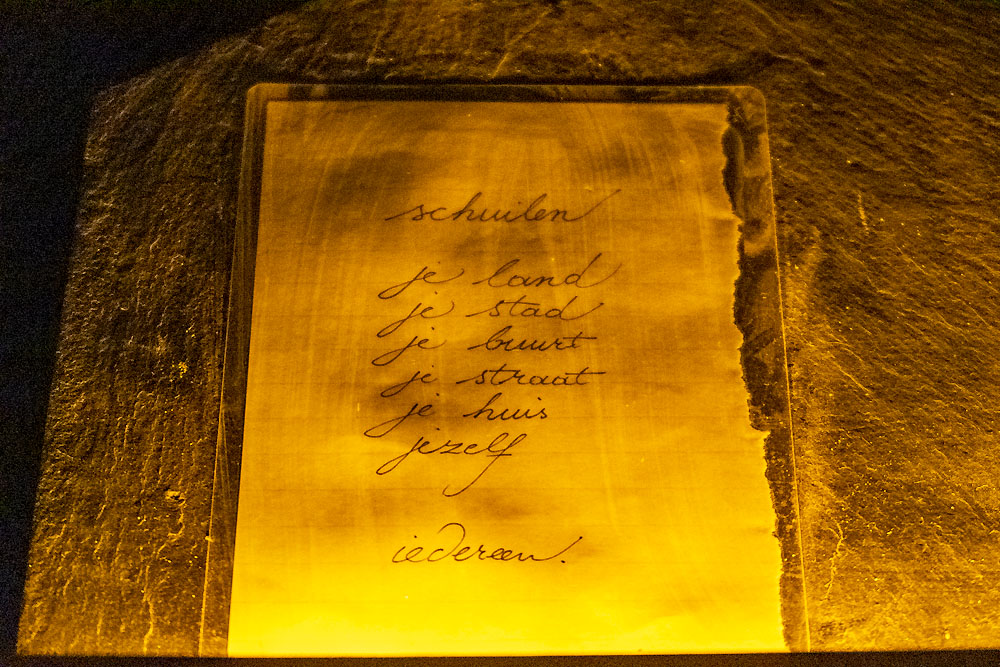 schuilen
je land
je stad
je buurt
je straat
je huis
jezelf
iedereen.